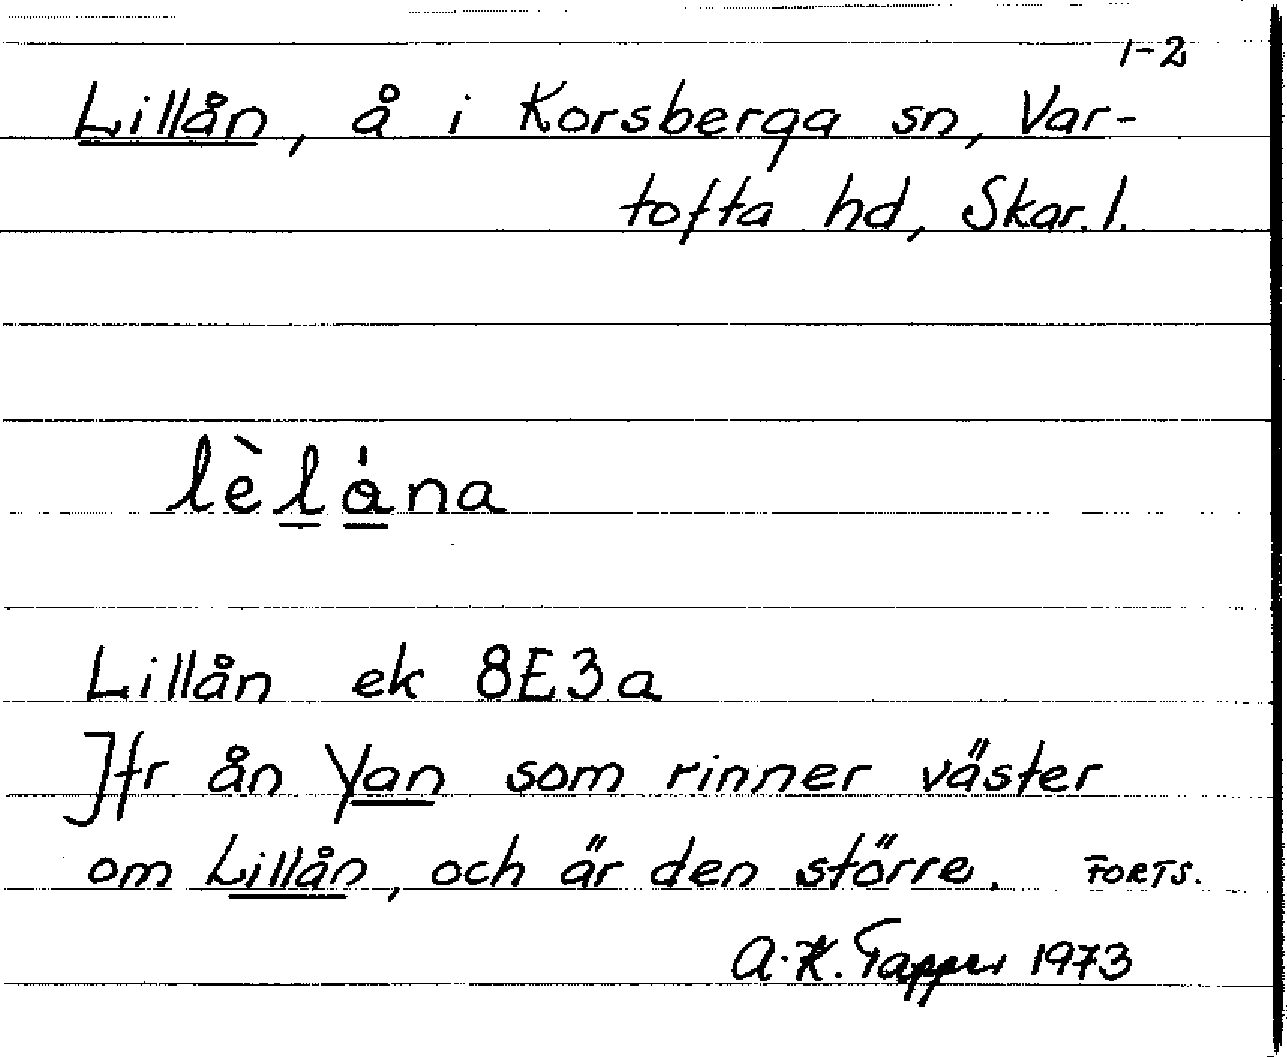 1-2
Lillån, å i Korsberga sn, Var-
tofta hd, Skar. l.
lèlåna
Lillån ek 8E3a
Jfr ån Yan som rinner väster
om Lillån, och är den större. FORTS.
A.K. 1973